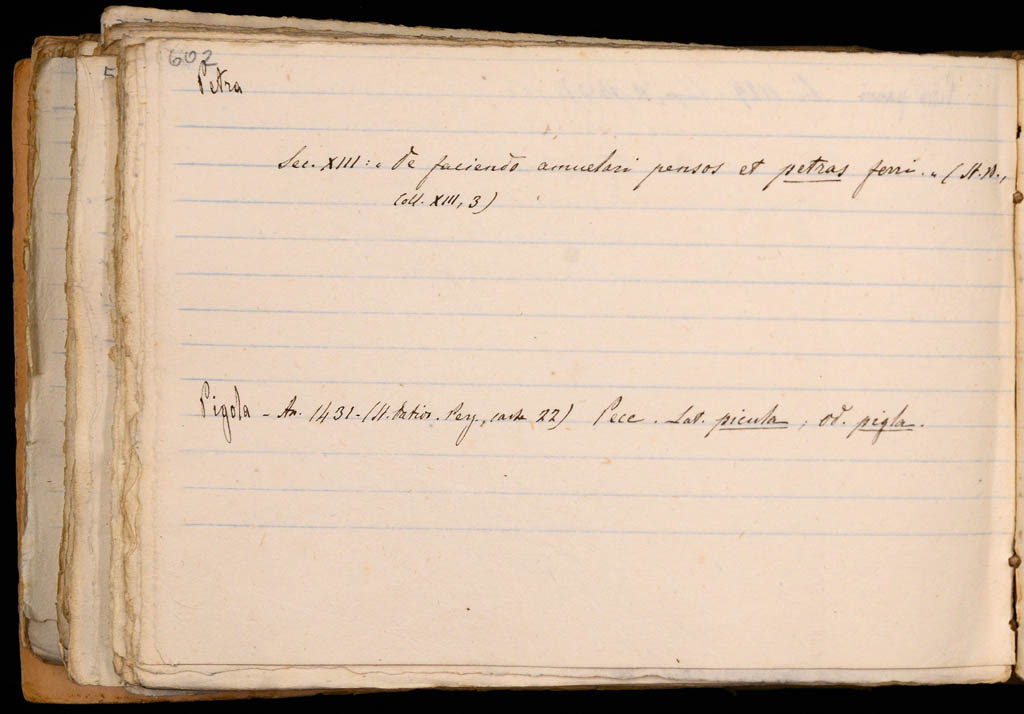 602
Petra
Sec. XIII: « De faciendo amuelari pensos et petras ferri. » (St. N.,
Coll. XIII, 3)
Pigola - An. 1431 - (St. Patior. Reg., carte 22) Pece. Lat. picula; od. pigla.